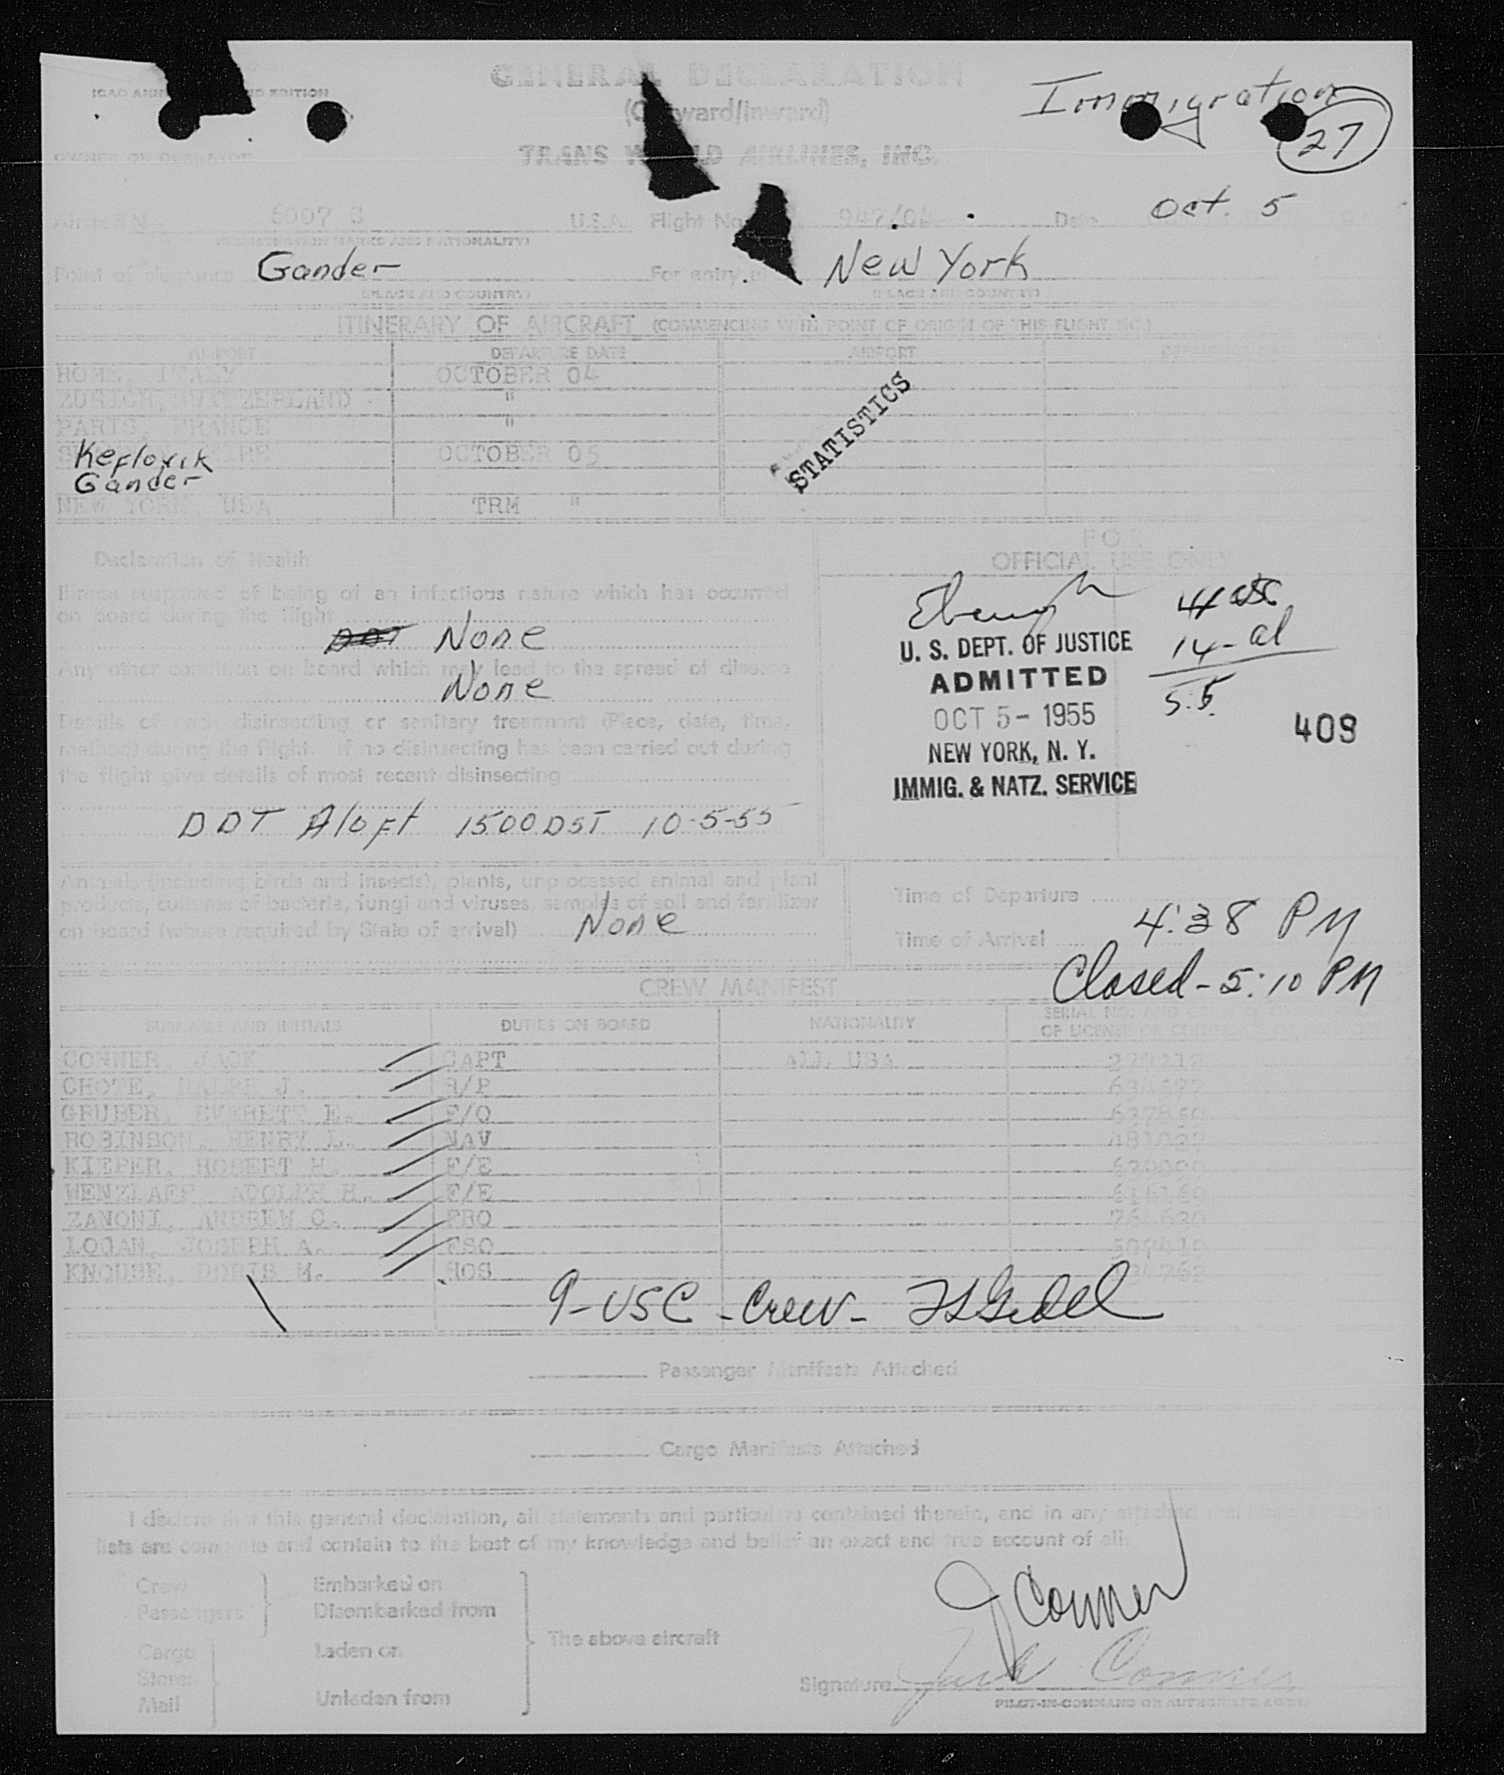 GENERAL DECLARATION
Immigration
27
(Outward/Inward)
OWNER OR OPERATOR
TRANS WORLD AIRLINES, INC.
Aircraft N 6007 C U.S.A. Flight No. 947/04 Date Oct. 5
(REGISTRATION MARKS AND NATIONALITY)
Point of clearance Gander For entry at New York
(PLACE AND COUNTRY) (PLACE AND COUNTRY)
ITINERARY OF AIRCRAFT (COMMENCING WITH POINT OF ORIGIN OF THIS FLIGHT NO.)
AIRPORT DEPARTURE DATE AIRPORT
ROME, ITALY OCTOBER 04
ZURICH, SWITZERLAND "
PARIS, FRANCE "
OCTOBER 05
Keflovik
Gander
NEW YORK, USA TRM "
STATISTICS
Declaration of Health
FOR
OFFICIAL USE ONLY
Illness suspected of being of an infectious nature which has occurred
on board during the flight
DDT None
Any other condition on board which may lead to the spread of disease
None
Details of each disinsecting or sanitary treatment (Place, date, time,
method) during the flight. If no disinsecting has been carried out during
the flight give details of most recent disinsecting
DDT Aloft 1500 DST 10-5-55
U. S. DEPT. OF JUSTICE
ADMITTED
OCT 5 - 1955
NEW YORK, N. Y.
IMMIG. & NATZ. SERVICE
14-al
55
409
Animals (including birds and insects), plants, unprocessed animal and plant
products, cultures of bacteria, fungi and viruses, samples of soil and fertilizer
on board (where required by State of arrival) None
Time of Departure
Time of Arrival 4:38 PM
Closed - 5:10 PM
CREW MANIFEST
SURNAME AND INITIALS DUTIES ON BOARD NATIONALITY
CONNER, JACK CAPT ALL USA
CHOTE, RALPH J.
GRUBER, EVERETT E. F/O
ROBINSON, HENRY L. NAV
KIEFER, ROBERT H. F/E
WENZLAFF, ADOLPH H. F/E
ZANONI, ANDREW C. PRO
LOGAN, JOSEPH A. FSO
KNOUSE, DORIS M. HOS
9-USC - Crew -
Passenger Manifests Attached
Cargo Manifests Attached
I declare that this general declaration, all statements and particulars contained therein, and in any attached
lists are complete and contain to the best of my knowledge and belief an exact and true account of all:
Crew
Passengers
Embarked on
Disembarked from
Cargo
Stores
Mail
Laden on
Unladen from
The above aircraft
J Conner
Signature Jack Conner
PILOT-IN-COMMAND OR AUTHORIZED AGENT